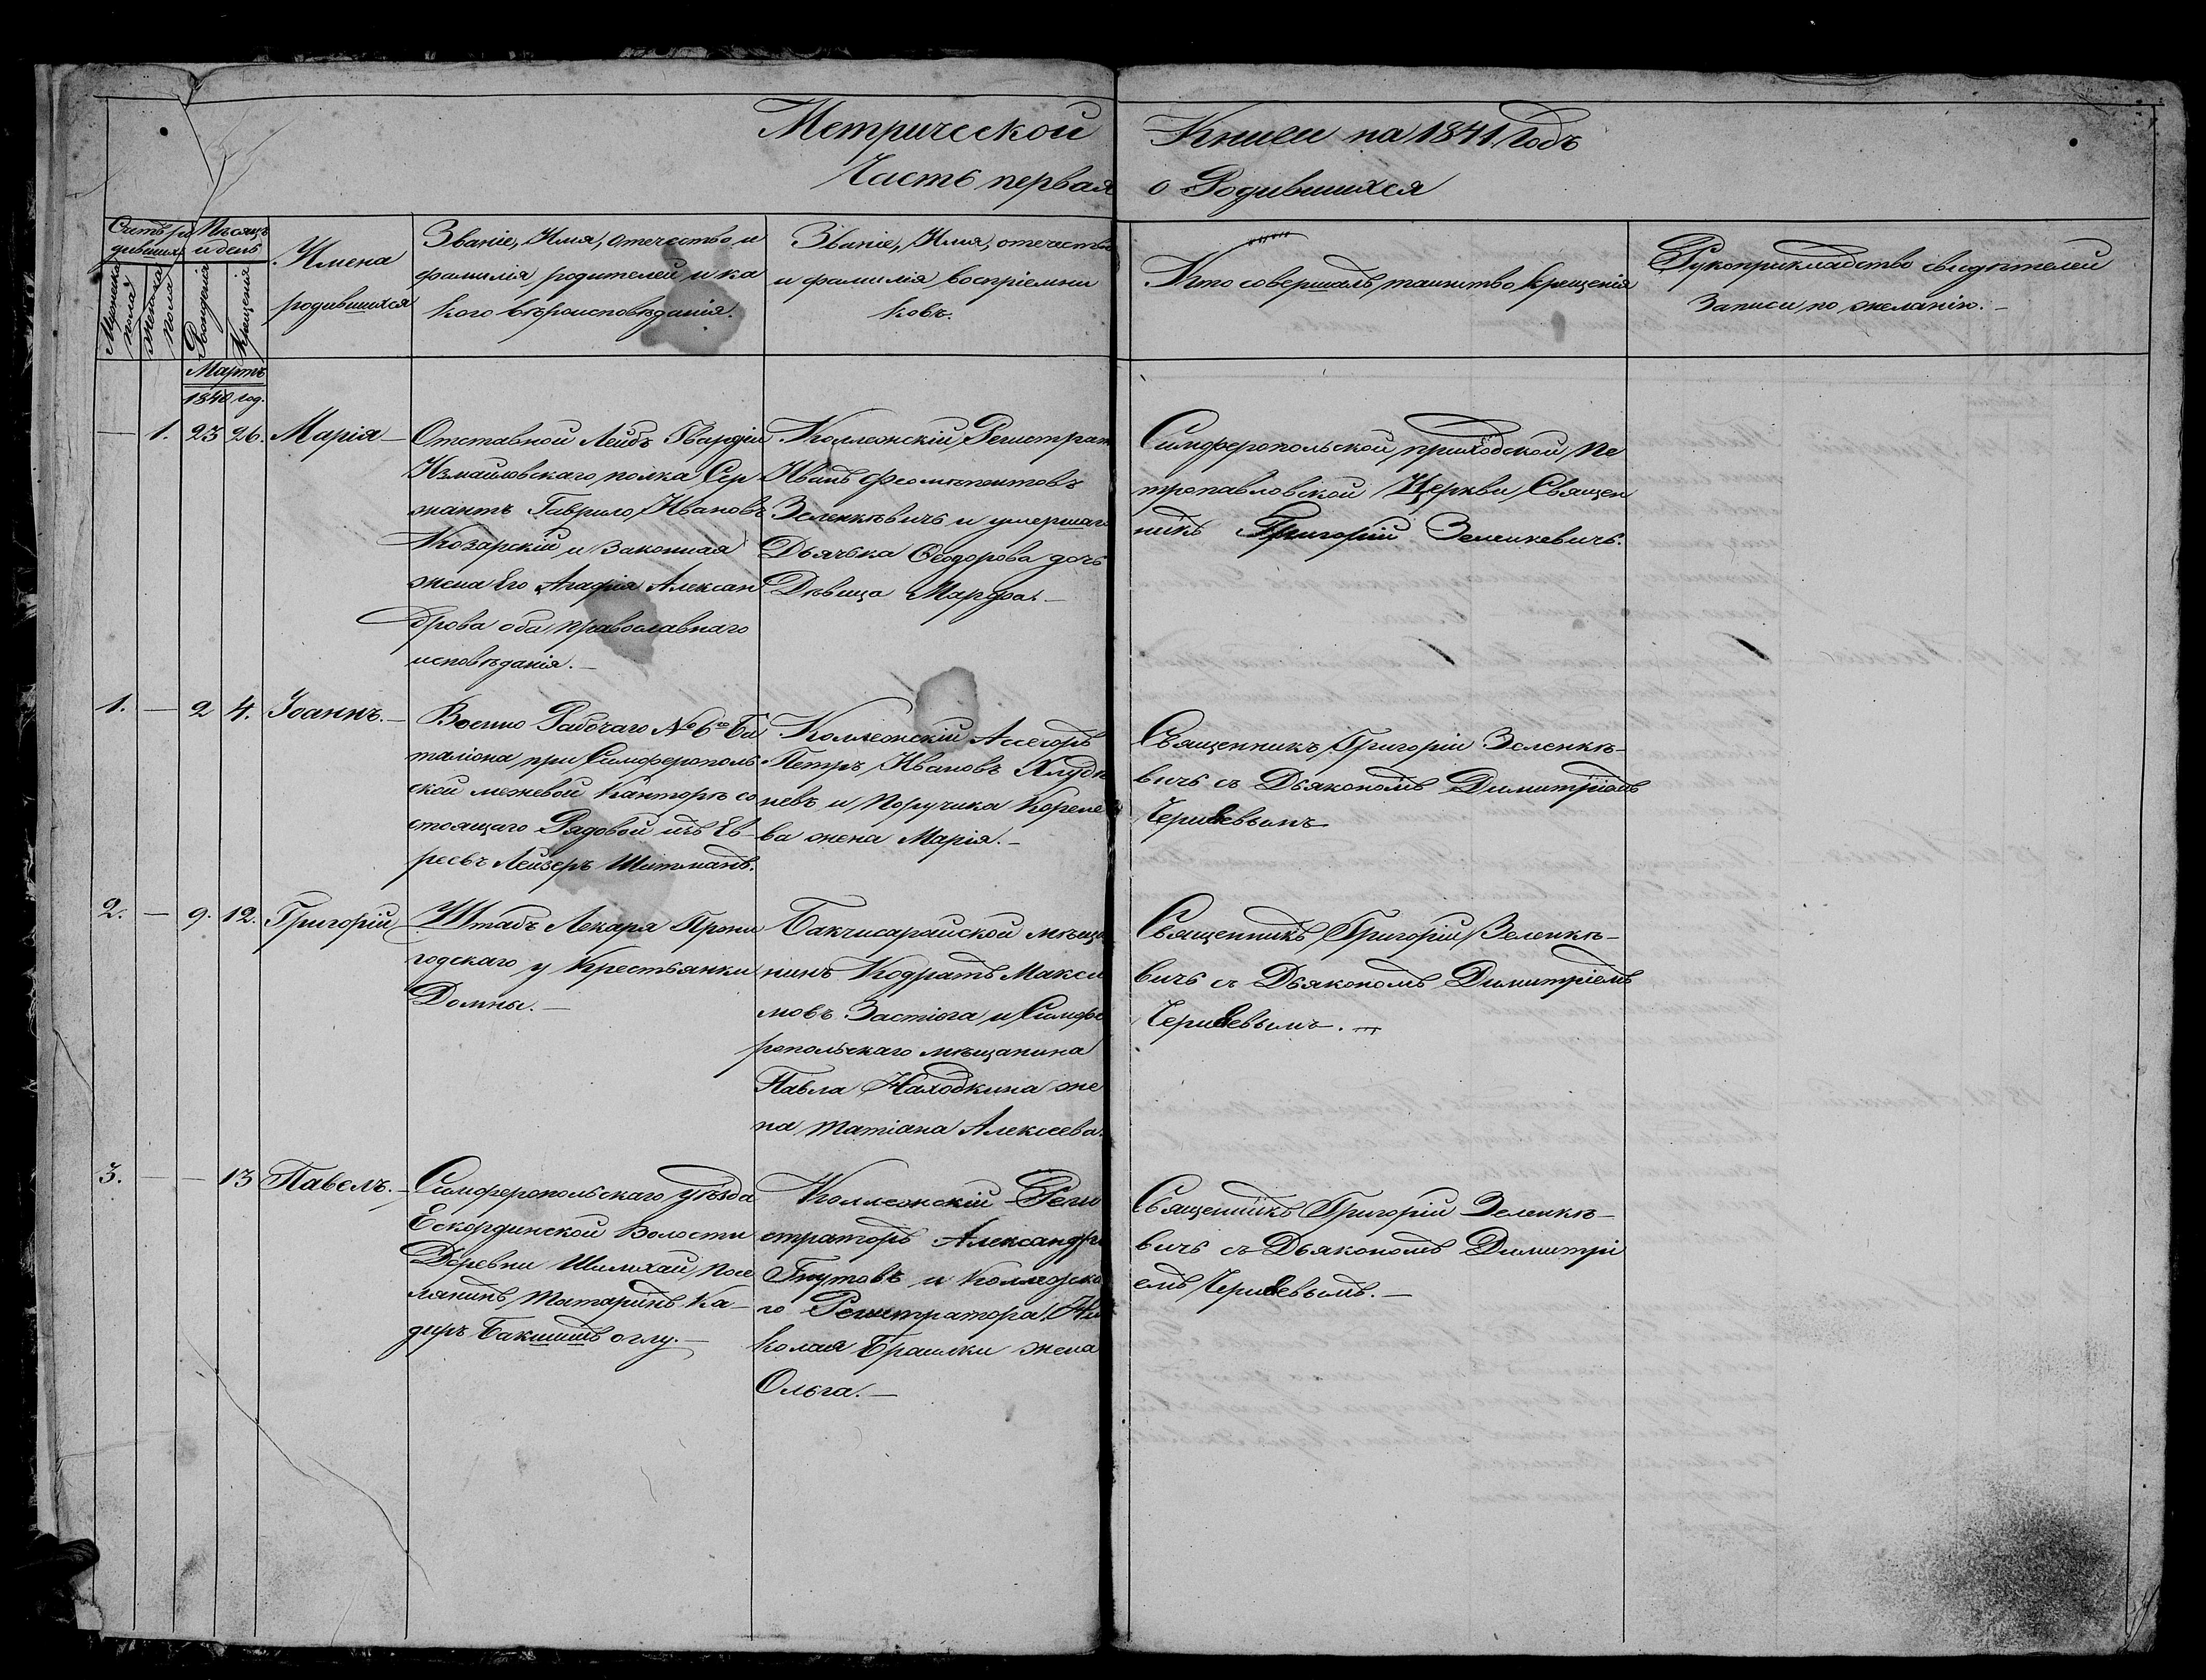 Метрической Книги на 1841 Годъ
Часть первая о Родившихся
Счетъ ро
дившихъ
Мѣсяцъ
и день
Мужеска
пола
Женска
пола
Рожденія
Крещенія
Имена
родившихся
Званіе, Имя, отечество и
фамилія родителей и ка
кого вѣроисповѣданія.
Званіе, Имя, отечество
и фамилія воспріемни
ковъ.
Кто совершалъ таинство крещенія
Рукоприкладство свидѣтелей
Записи по желанію.
Мартъ
1840 год.
— 1. 23 26. Марія —
Отставной Лейбъ Гвардіи
Измайловскаго полка Сер
жантъ Гаврило Ивановъ
Козарскій и Законная
жена Его Агафія Алексан
дрова оба православнаго
исповѣданія. —
Коллежскій Регистрат
Иванъ
Зеленкѣвичъ и умершаго
Дьячька Ѳеодорова дочь
Дѣвица Марфа. —
Симферопольской приходской Пе
тропавловской Церкви Священ
никъ Григорій Зеленкевичъ.
1. — 2 4. Іоаннъ. —
Военно Рабочаго № 6го Ба
таліона при Симферополь
ской межевой Канторѣ со
стоящаго Рядовой изъ Ев-
реевъ Лейзеръ Шитманъ.
Коллежскій Асесоръ
Петръ Ивановъ
невъ и Поручика Кореле
ва жена Марія. —
Священникъ Григорій Зеленкѣ-
вичъ съ Дьякономъ Димитріемъ
2. — 9. 12. Григорій
Штабъ Лекаря
годскаго у Крестьянки
Домны. —
Бакчисарайской мѣща
нинъ Кодратъ Макси
мовъ Застіога и Симфе
ропольскаго мѣщанина
Павла Находкина же
на Татіана Алексеева.
Священникъ Григорій Зеленкѣ-
вичъ съ Дьякономъ Димитріемъ
3. — — 13 Павелъ. —
Симферопольскаго уѣзда
Ескординской Волости
Деревни Шумхай посе
лянинъ Татаринъ Ка-
диръ Бакшишъ оглу. —
Коллежскій Реги
страторъ Александръ
и Коллежска
го Регистратора Ни
колая Браилки жена
Ольга. —
Священникъ Григорій Зеленкѣ-
вичъ съ Дьякономъ Димитрі
емъ